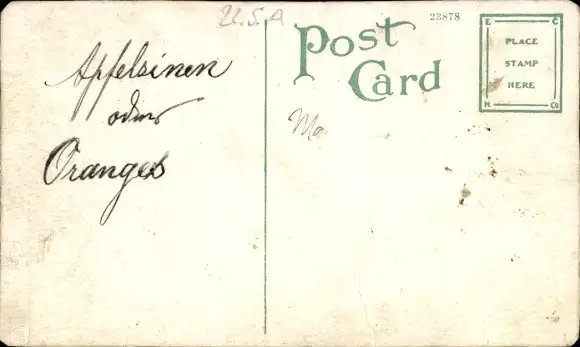 U.S.A
23878
Post
Card
E C
PLACE
STAMP
HERE
H Co
Apfelsinen
oder
Oranges